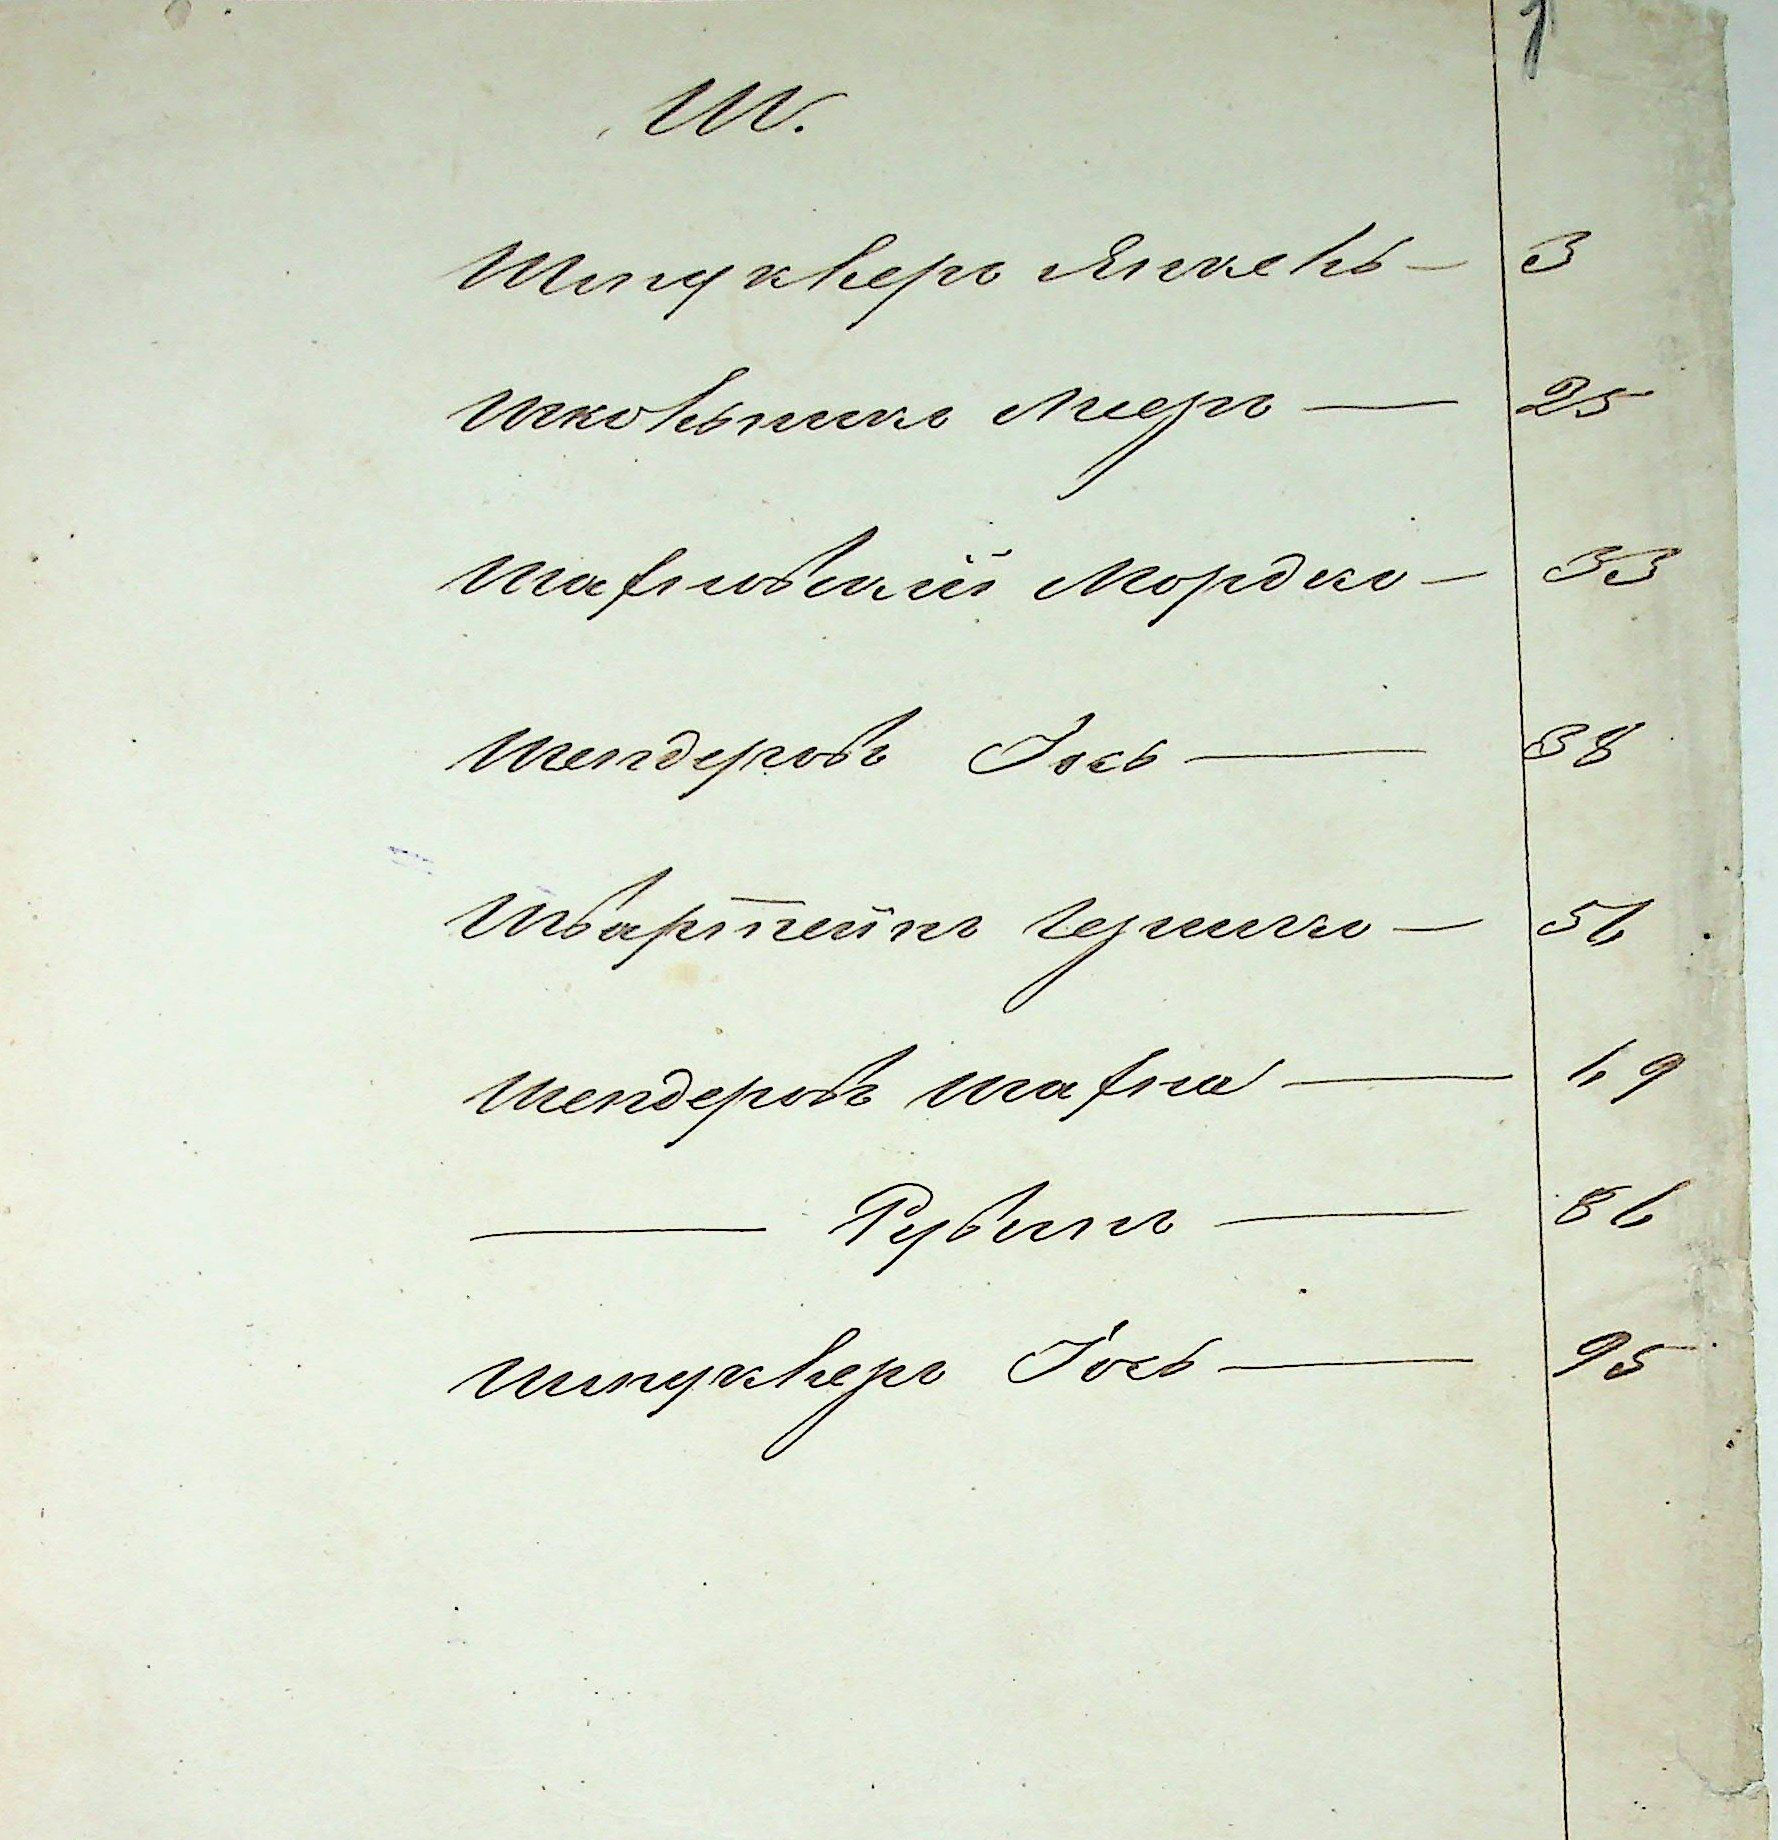 Ш.
Шпуклеръ Янкель — 3
Школьникъ Мееръ — 25
Шафновский Мордко — 33
Шендеровъ Іось — 38
Шварштейнъ Гершко — 56
Шендеровъ Шафна — 69
— Рувинъ — 86
Шпуклеръ Іось — 95